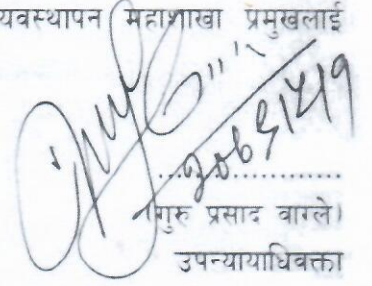 यवस्थापन महाशाखा प्रमुखलाई
....................
(गुरु प्रसाद वाग्ले)
उपन्यायाधिवक्ता